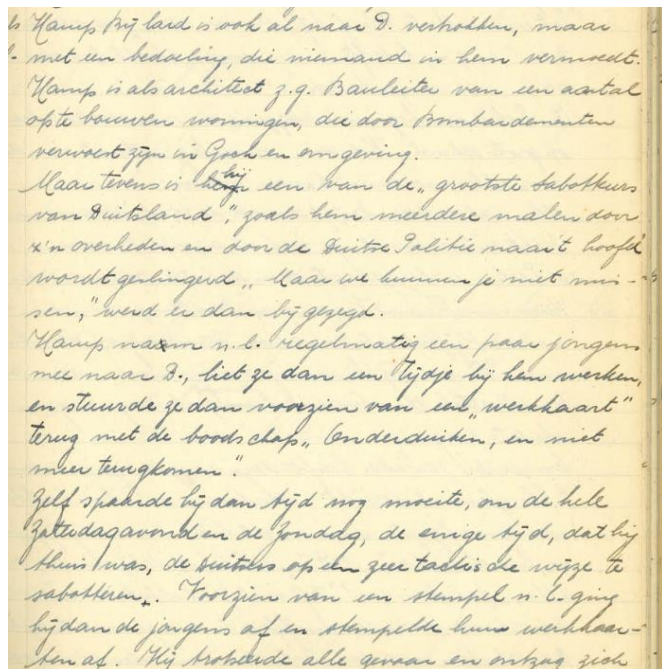 Kamp Bijlard is ook al naar D. vertrokken, maar
met een bedoeling, die niemand in hem vermoedt.
Kamp is als architect z.g. Bauleiter van een aantal
op te bouwen woningen, die door Bombardementen
verwoest zijn in Goch en omgeving.
Maar tevens is hij een van de „grootste Sabotkurs
van Duitsland", zoals hem meerdere malen door
z'n overheden en door de Duitse Politie naar 't hoofd
wordt geslingerd „Maar we kunnen je niet mis-
sen," werd er dan bij gezegd.
Kamp nam n.l. regelmatig een paar jongens
mee naar D., liet ze dan een tijdje bij hem werken,
en stuurde ze dan voorzien van een „werkkaart"
terug met de boodschap „Onderduiken, en niet
meer terugkomen".
Zelf spaarde hij dan tijd nog moeite, om de hele
Zaterdagavond en de Zondag, de enige tijd, dat hij
thuis was, de Duitsers op een zeer tactische wijze te
sabotteren. Voorzien van een stempel n.l. ging
hij dan de jongens af en stempelde hun werkkaar-
ten af. Hij trotseerde alle gevaar en ontzag zich